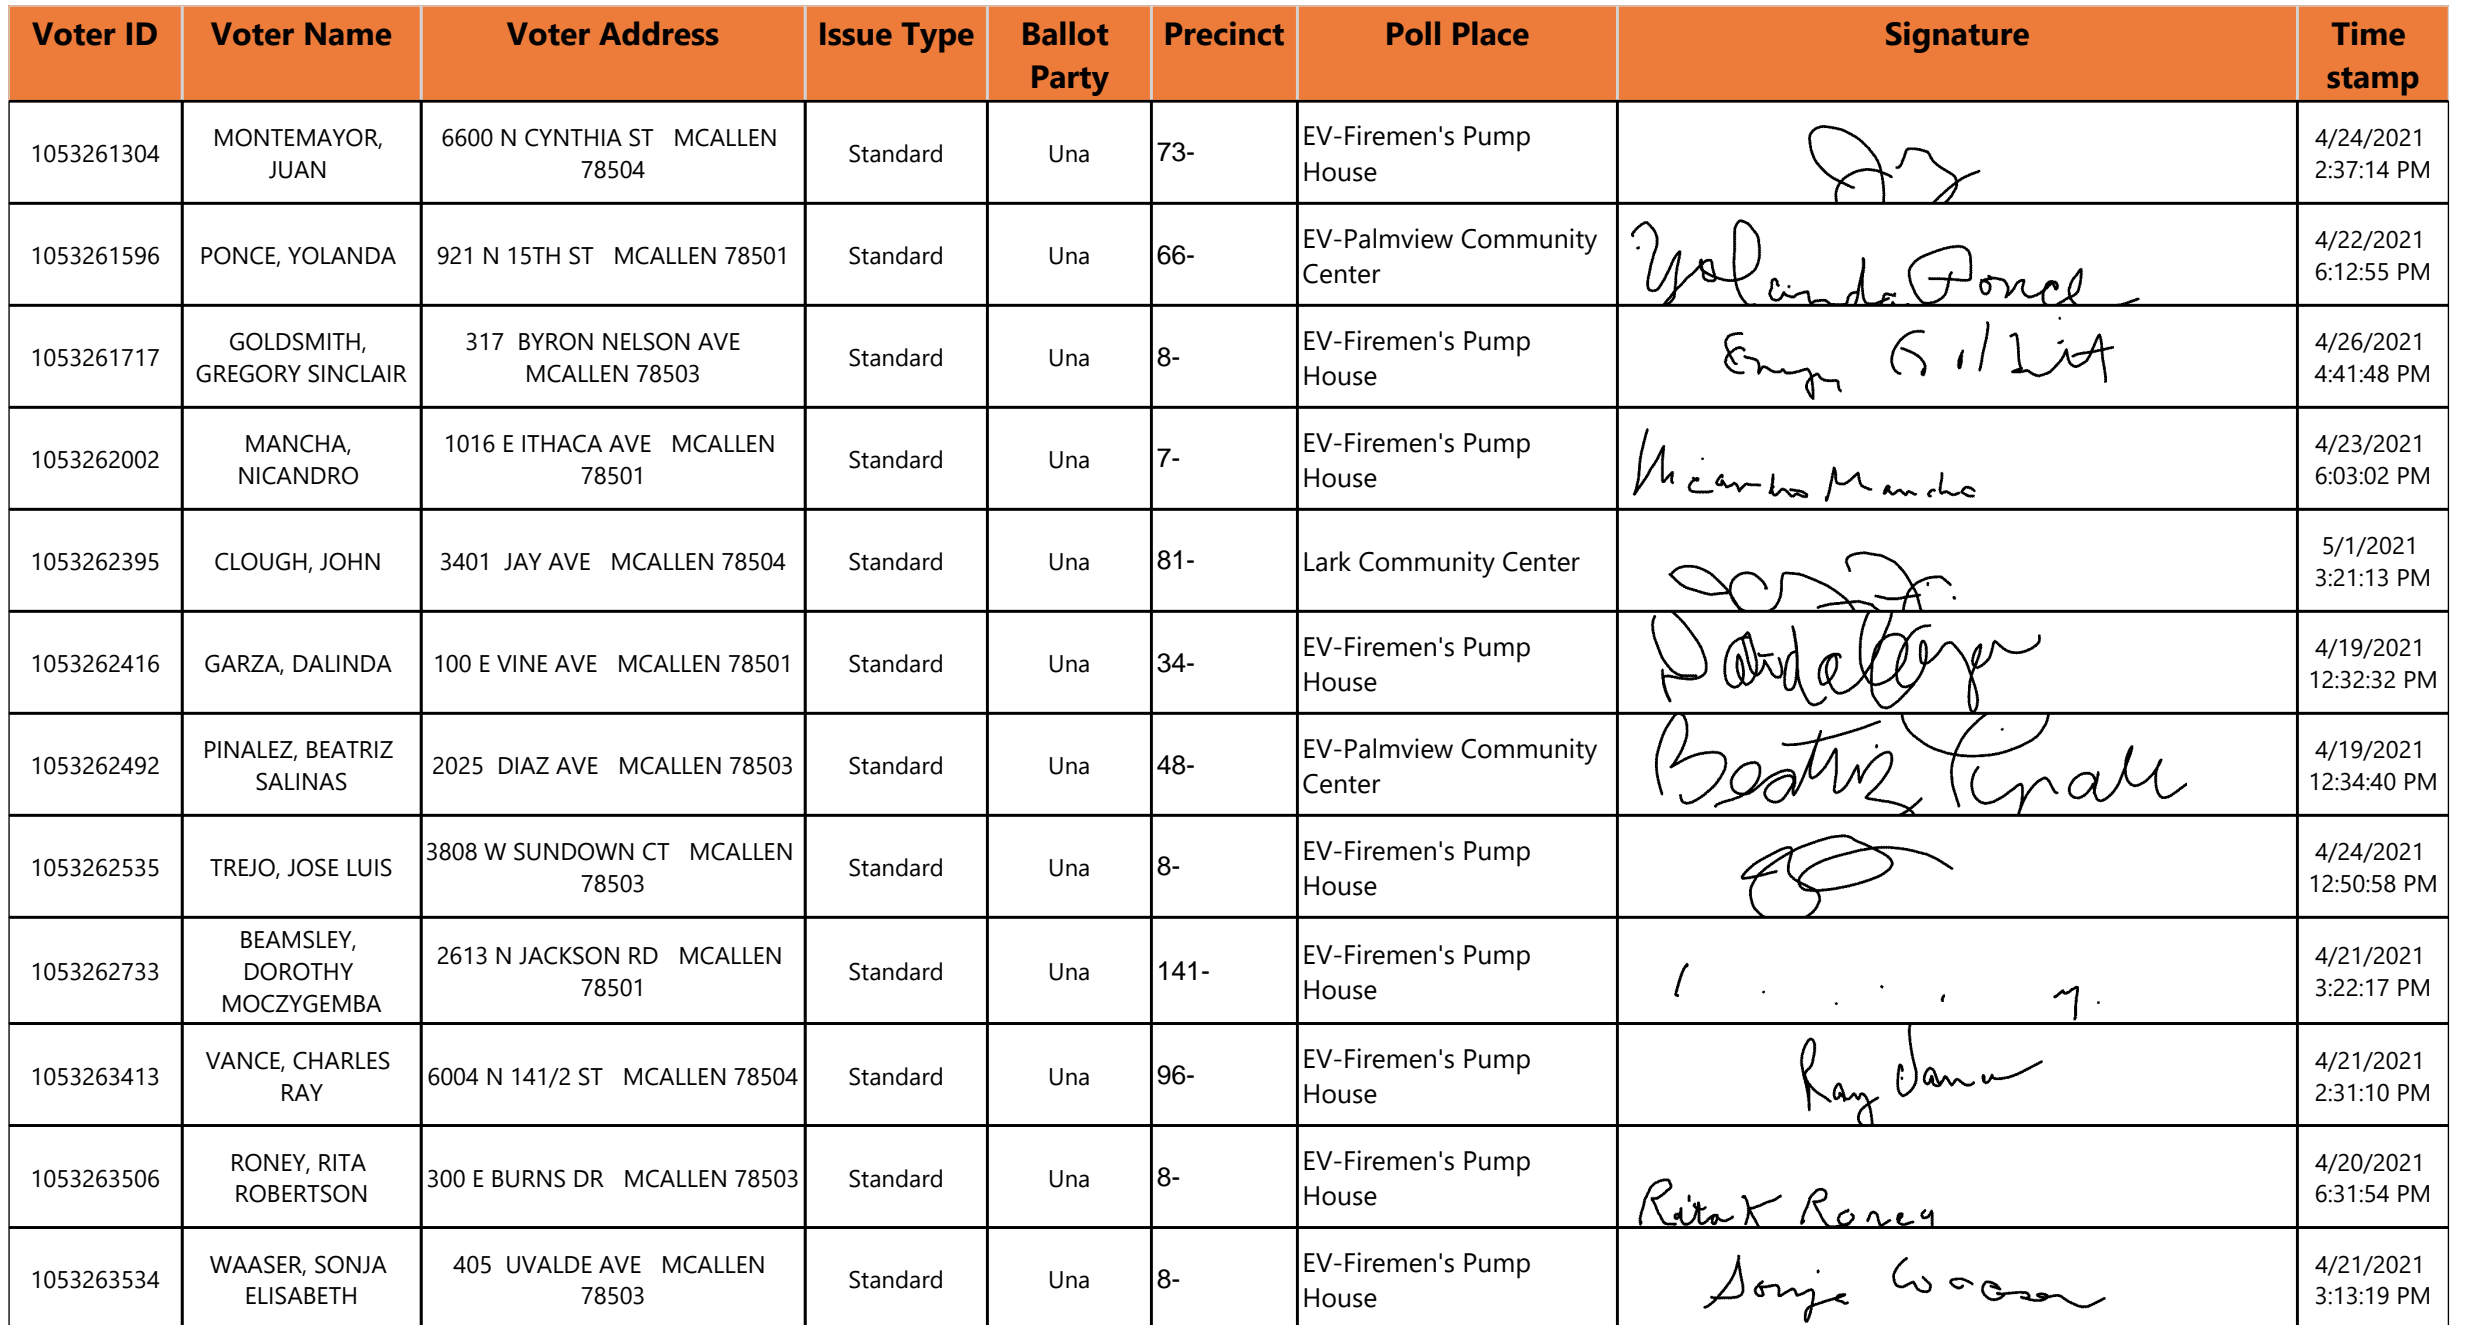 Voter ID Voter Name Voter Address Issue Type Ballot Party Precinct Poll Place Signature Time stamp
1053261304 MONTEMAYOR, JUAN 6600 N CYNTHIA ST MCALLEN 78504 Standard Una 73- EV-Firemen's Pump House 4/24/2021 2:37:14 PM
1053261596 PONCE, YOLANDA 921 N 15TH ST MCALLEN 78501 Standard Una 66- EV-Palmview Community Center Yolanda Ponce 4/22/2021 6:12:55 PM
1053261717 GOLDSMITH, GREGORY SINCLAIR 317 BYRON NELSON AVE MCALLEN 78503 Standard Una 8- EV-Firemen's Pump House 4/26/2021 4:41:48 PM
1053262002 MANCHA, NICANDRO 1016 E ITHACA AVE MCALLEN 78501 Standard Una 7- EV-Firemen's Pump House Nicandro Mancha 4/23/2021 6:03:02 PM
1053262395 CLOUGH, JOHN 3401 JAY AVE MCALLEN 78504 Standard Una 81- Lark Community Center 5/1/2021 3:21:13 PM
1053262416 GARZA, DALINDA 100 E VINE AVE MCALLEN 78501 Standard Una 34- EV-Firemen's Pump House Dalinda Garza 4/19/2021 12:32:32 PM
1053262492 PINALEZ, BEATRIZ SALINAS 2025 DIAZ AVE MCALLEN 78503 Standard Una 48- EV-Palmview Community Center Beatriz 4/19/2021 12:34:40 PM
1053262535 TREJO, JOSE LUIS 3808 W SUNDOWN CT MCALLEN 78503 Standard Una 8- EV-Firemen's Pump House 4/24/2021 12:50:58 PM
1053262733 BEAMSLEY, DOROTHY MOCZYGEMBA 2613 N JACKSON RD MCALLEN 78501 Standard Una 141- EV-Firemen's Pump House 4/21/2021 3:22:17 PM
1053263413 VANCE, CHARLES RAY 6004 N 141/2 ST MCALLEN 78504 Standard Una 96- EV-Firemen's Pump House Ray Vance 4/21/2021 2:31:10 PM
1053263506 RONEY, RITA ROBERTSON 300 E BURNS DR MCALLEN 78503 Standard Una 8- EV-Firemen's Pump House Rita K Roney 4/20/2021 6:31:54 PM
1053263534 WAASER, SONJA ELISABETH 405 UVALDE AVE MCALLEN 78503 Standard Una 8- EV-Firemen's Pump House Sonja Waaser 4/21/2021 3:13:19 PM